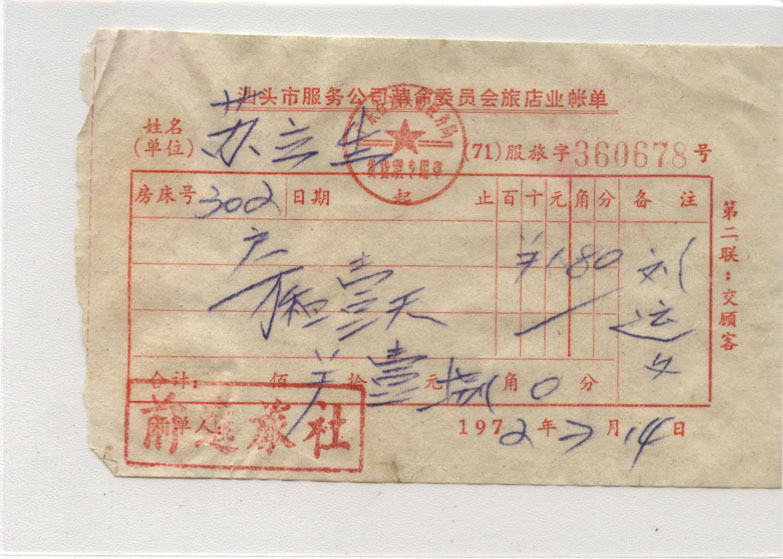 汕头市服务公司革命委员会旅店业帐单
姓名
(单位) 苏立生
(71)服旅字360678号
房床号 302 日期 起 止 百 十 元 角 分 备 注
¥1.80
壹天
合计: 佰 ¥ 拾 壹 元 捌 角 0 分
开单人:
前进旅社
1972年7月14日
第二联:交顾客
发货票专用章